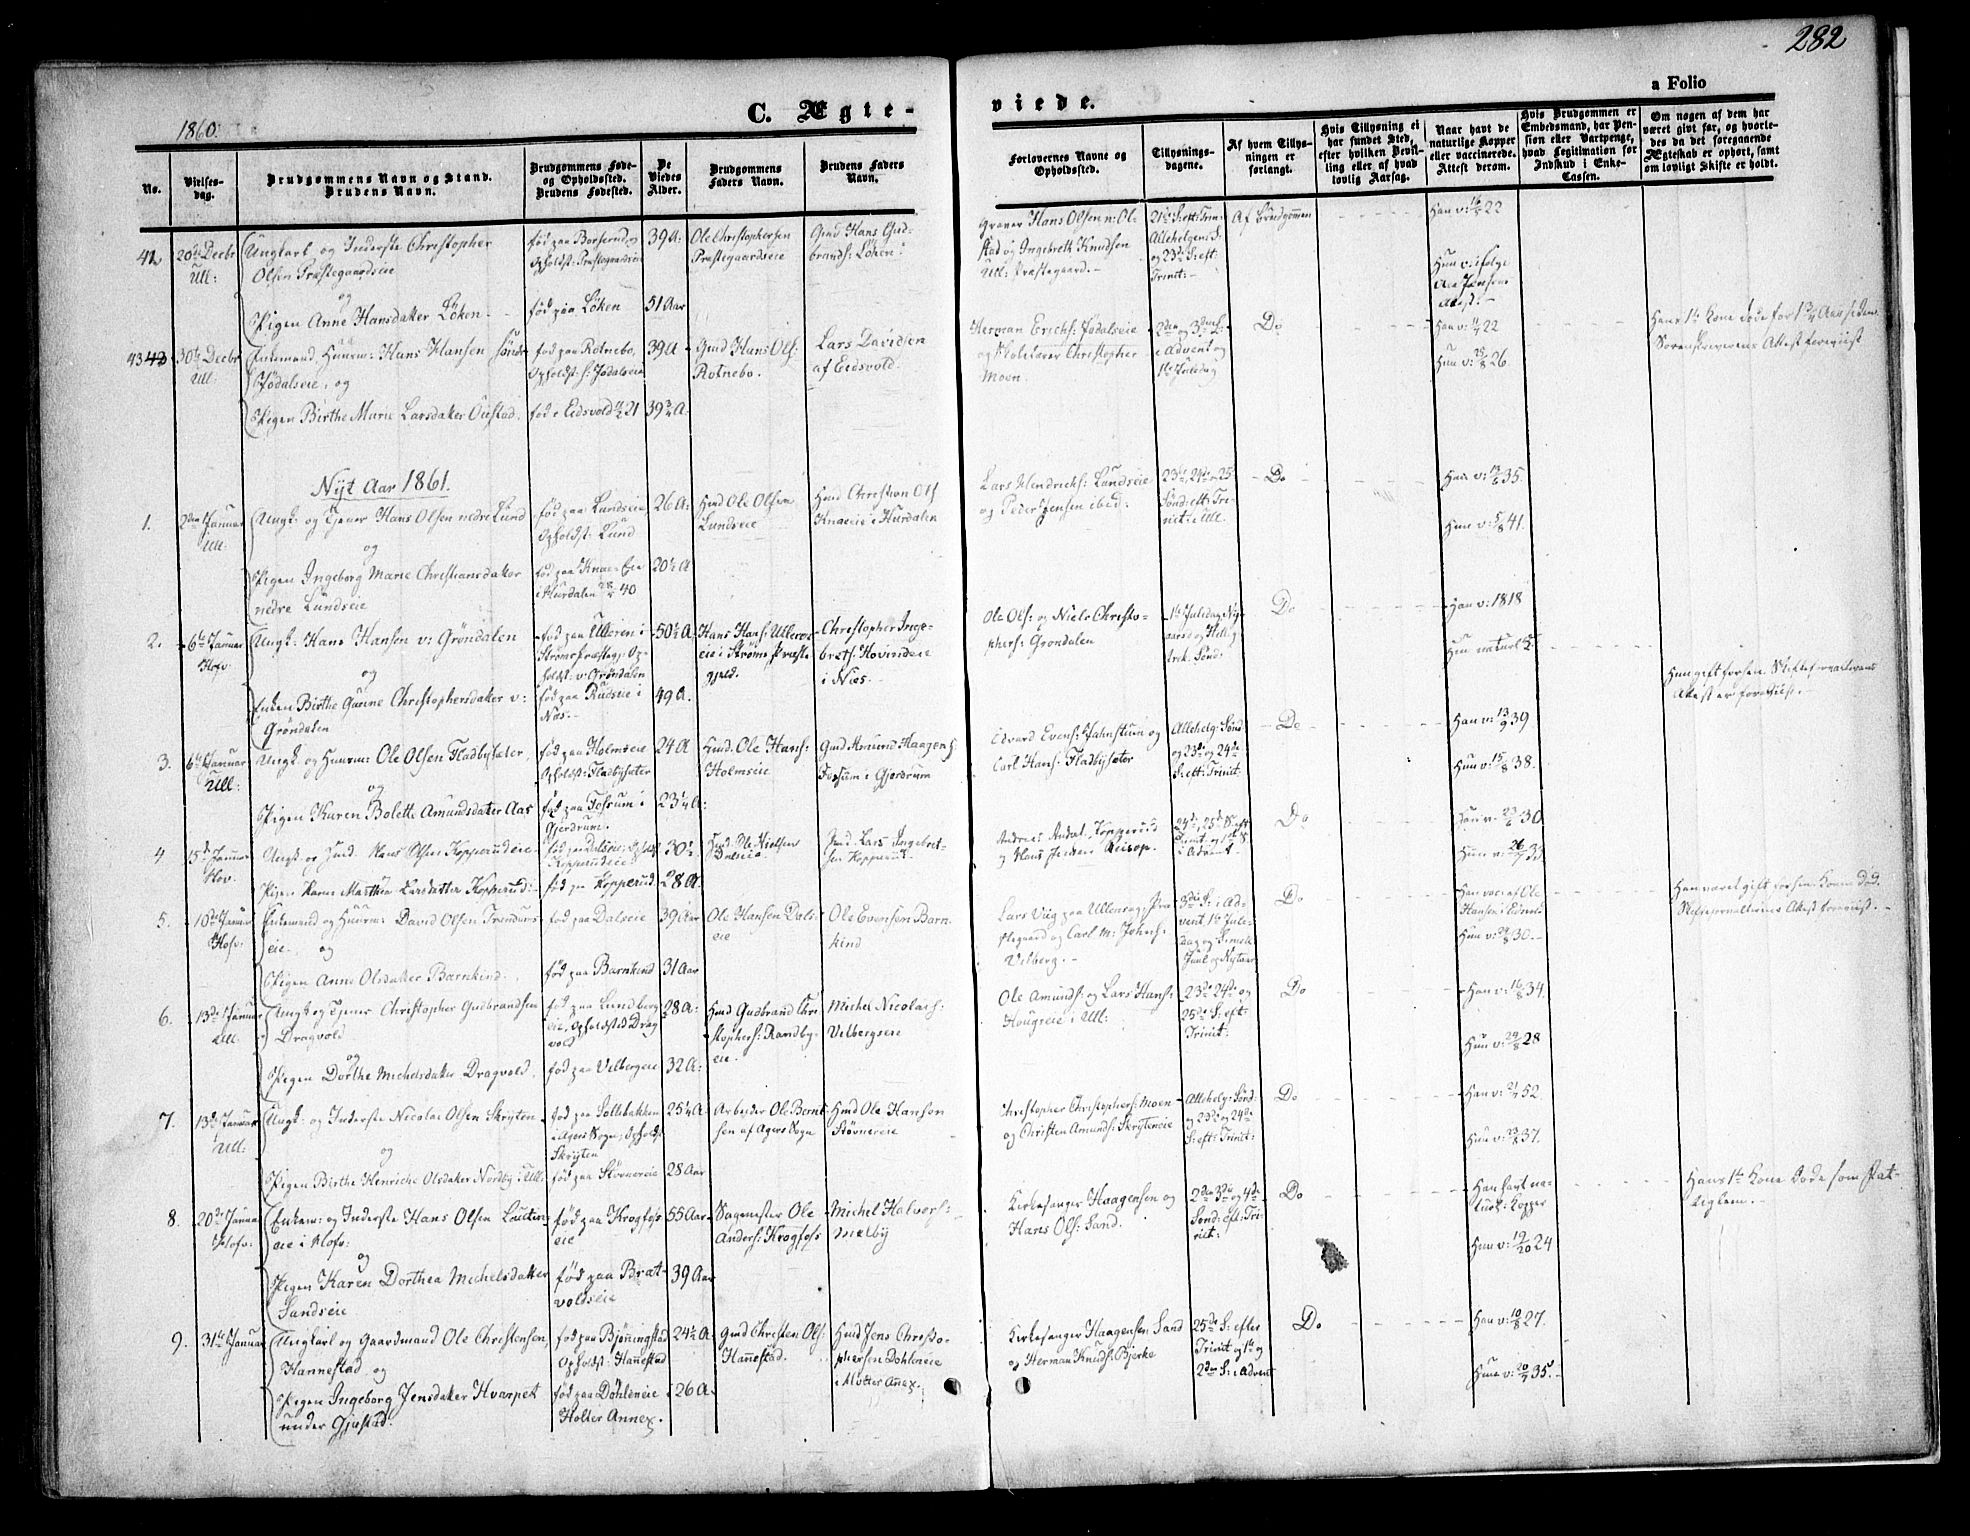 282
a Folio
C. Ægte-
viede.
1860.
No.
Vielses-
dag.
Brudgommens Navn og Stand.
Brudens Navn.
Brudgommens Føde-
og Opholdssted.
Brudens Fødested.
De
Viedes
Alder.
Brudgommens
Faders Navn.
Brudens Faders
Navn.
Forlovernes Navne og
Opholdssted.
Tillysnings-
dagene.
Af hvem Tillys-
ningen er
forlangt.
Hvis Tillysning ei
har fundet Sted,
efter hvilken Bevil-
ling eller af hvad
lovlig Aarsag.
Naar havt de
naturlige Kopper
eller vaccinerede.
Attest derom.
Hvis Brudgommen er
Embedsmand, har Pen-
sion eller Vartpenge,
hvad Legitimation for
Indskud i Enke-
Cassen.
Om nogen af dem har
været gift før, og hvorle-
des da det foregaaende
Ægteskab er ophørt, samt
om lovligt Skifte er holdt.
42
20de Decbr
Ull:
Ungkarl og Inderste Christopher
Olsen Præstegaardseie
og
Pigen Anne Hansdatter Løken
fød paa Borserud, og
Opholdst: Præstegaardseie
fød paa Løken
39 A:
51 Aar
Ole Christophersen
Præstegaardseie
Gmd Hans Gud-
brands: Løken
Graver Hans Olsen n: Ol-
stad og Ingebreth Knudsen
Ull: Præstegaard.
21de S: eft: Trin:
Allehelgens S:
og 23de S: eft:
Trinit:
Af Brudgommen
Han v: 22
Hun v: ifølge
Attest.
43
30te Decbr
Ull:
Enkemand, Huusm: Hans Hansen søndr
Jødalseie, og
Pigen Birthe Marie Larsdatter Ouestad
fød paa Rotnebo,
Opholdst: s: Jødalseie
fød i Eidsvold 21
39 A
39 3/4 A:
Gmd Hans Ols:
Rotnebo.
Lars Davidsen
af Eidsvold.
Herman Erichs: Jødalseie
og Skolelærer Christopher
Moen.
2den og 3die S:
i Advent og
1ste Juledag
Do
Han v: 22
Hun v: 25/8 26.
Hans 1te Kone døde for 1 3/4 Aar siden
Sorenskriverens Attest foreviist
Nyt Aar 1861.
1.
2den Januar
Ull.
Ungk: og Tjener Hans Olsen nedre Lund
og
Pigen Ingeborg Marie Christiansdatter
nedre Lundseie
fød paa Lundseie,
Opholdst: Lund
fød paa Knai-Eie
i Hurdalen 40
26 A:
20 1/2 A
Hmd Ole Olsen
Lundseie
Hmd Christian Ols
Knaieie i Hurdalen
Lars Hendrichs: Lundseie
og Peder Jensen ibid:
23de, 24de og 25
Sønd: eft: Tri-
nit: i Ull.
Do
Han v: 35.
Hun v: 5/8 41.
2.
6te Januar
Hofv:
Ungk: Hans Hansen v: Grøndalen
og
Enken Birthe Gurine Christophersdatter v:
Grøndalen
fød paa Ulleren i
Strøms Præstegj: Op-
holdst: v: Grøndalen
fød paa Rudseie i
Næs.
50 1/2 A
49 A.
Hans Hans: Ulleren
eie i Strøms Præste
gjeld.
Christopher Inge-
brets: Hovindeie
i Næs.
Ole Ols: og Niels Christo-
phers: Grøndalen
1ste Juledag Nyt-
aarsd og Hellig
trek. Sønd.
Do
Han v: 1818
Hun naturl K.
Hun gift før sen. Skifteforvalterens
Attest er foreviist.
3.
6te Januar
Ull:
Ungk og Huusm: Ole Olsen Fladbysæter,
og
Pigen Karen Bolette Amundsdatter Aas
fød paa Holmseie
Opholdst: Fladbysæter
fød paa Fossum i
Gjerdrum.
24 A
23 1/4 A:
Hmd: Ole Hans:
Holmseie
Gmd Amund Haagens:
Fossum i Gjerdrum
Edvard Evens: Jahnstuen og
Carl Hans: Fladbysæter
Allehelg: Sønd
og 23de og 24de
S: eft: Trinit:
Do
Han v: 13/9 39
Hun v: 15/8 38.
4
5te Januar
Hov.
Ungk og Hmd. Hans Olsen Kopperudeie
Pigen Karen Marthea Larsdatter Kopperud
fød paa Kopperud
30 1/2
28 A
Hmd. Ole Nielsen
Dalseie
Hmd. Lars Ingebret-
sen Kopperud.
24de, 25de S. eft
Trinit. og 1ste S.
i Advent.
Do
Han v. 30
Hun v: 33
5.
10de Januar
Hofv:
Enkemand og Huusm: David Olsen Trandums
eie, og
Pigen Anne Olsdatter Barnkind
fød paa Dalseie
fød paa Barnkind
39 Aar
31 Aar
Ole Hansen Dals-
eie
Ole Evensen Barn-
kind
Lars Viig paa Ullensag: Præ-
stegaard og Carl M: Johns:
Vilberg.
3die S: i Ad-
vent, 1te Jule-
dag og S: mell
Juul og Nytaar
Do
Han vac: af Ole
Hansen i Eidsvold
Hun v: 30.
Han været gift før sen. Konen død.
Skifteforvalterens Attest foreviist.
6.
13de Januar
Ull.
Ungk og Tjener Christopher Gudbrandsen
Dragvold
og
Pigen Dorthe Michelsdatter Dragvold.
fød paa Lundberg
eie, Opholdsted Drag
vold
fød paa Vilbergeie
28 A:
32 A:
Hmd Gudbrand Chri
stophers: Randby-
eie.
Michel Nicolais:
Vilbergseie
Ole Amunds: og Lars Hans:
Hougseie i Ull:
23de 24de og
25de S: eft
Trinit:
Do
Han v: 16/8 34.
Hun v: 28
7.
13de Januar
Ull:
Ungk: og Inderste Nicolai Olsen Skryten
og
Pigen Birthe Henriche Olsdatter Nordby i Ull.
fød paa Sollibakken
i Agers Sogn, Opholdst
Skryten
fød paa Støvnereie
25 1/4 A:
28 Aar
Arbeider Ole Bernt-
sen af Agers Sogn
Hmd Ole Hansen
Støvnereie
Christopher Christophers: Moen
og Christen Amunds: Skryteneie
Allehelg: Sønd:
og 23de og 24de
S: eft: Trinit:
Do
Han v: 52
Hun v: 37.
8.
20de Januar
Hofv:
Enkem: og Inderste Hans Olsen Lutten
eie i Hofv:
og
Pigen Karen Dorthea Michelsdatter
Sandseie
fød paa Krogfoss
eie
fød paa Brat-
voldseie
55 Aar
39 Aar
Sagmester Ole
Anders: Krogfoss
Michel Halvors:
Melby
Kirkesanger Haagensen og
Hans Ols: Sand.
2den 3die og 4de
Sønd: eft: Tri-
nit:
Do
Han havt na-
turl: Kopper
Hun v: 19/20 24
Hans 1te Kone døde som fat-
tiglem.
9.
31te Januar
Ungkarl og Gaardmand Ole Christensen,
Hannestad, og
Pigen Ingeborg Jensdatter Hvarpet
under Gjestad.
fød paa Bjønningstad
Opholdst: Hannestad
fød paa Døhleneie i
Holter Annex.
24 1/2 A:
26 A.
Gmd Christen Ols:
Hannestad.
Hmd Jens Christo-
phersen Døhleneie
i Holter Annex.
Kirkesanger Haagensen Sand
og Herman Knuds: Bjerke
25de S: efter
Trinit og 1te og
2den S: i Advent
Do
Han v: 10/8 27.
Hun v: 35.